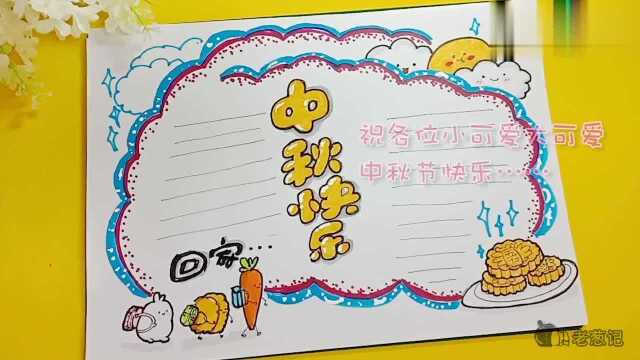 中秋快乐
祝各位小可爱大可爱
中秋节快乐……
回家…
老葱记